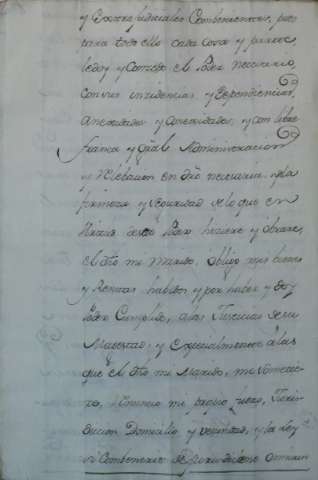 y Extrajudiciales Combenientes, pues
para todo ello cada cosa y parte,
le doy y Concedo el Poder necesario,
con sus incidencias, y dependencias,
anexidades y conexidades, y con libre
franca y Gral Administracion
y Relebacion en dro necesaria. Y a la
firmeza y seguridad de lo que en
virtud deste Poder hiciere y obrare,
el dho mi Marido, Obligo mis bienes
y Rentas habidos, y por haber y doy
Poder Cumplido, a las Justicias de su
Magestad, y Especialmente a las
que el dho mi Marido, me Sometie
re, Renuncio mi propio fuero, Juris
diccion Domicilio y vecindad, y la Ley
si Combenerit de Jurisdictione Omnium